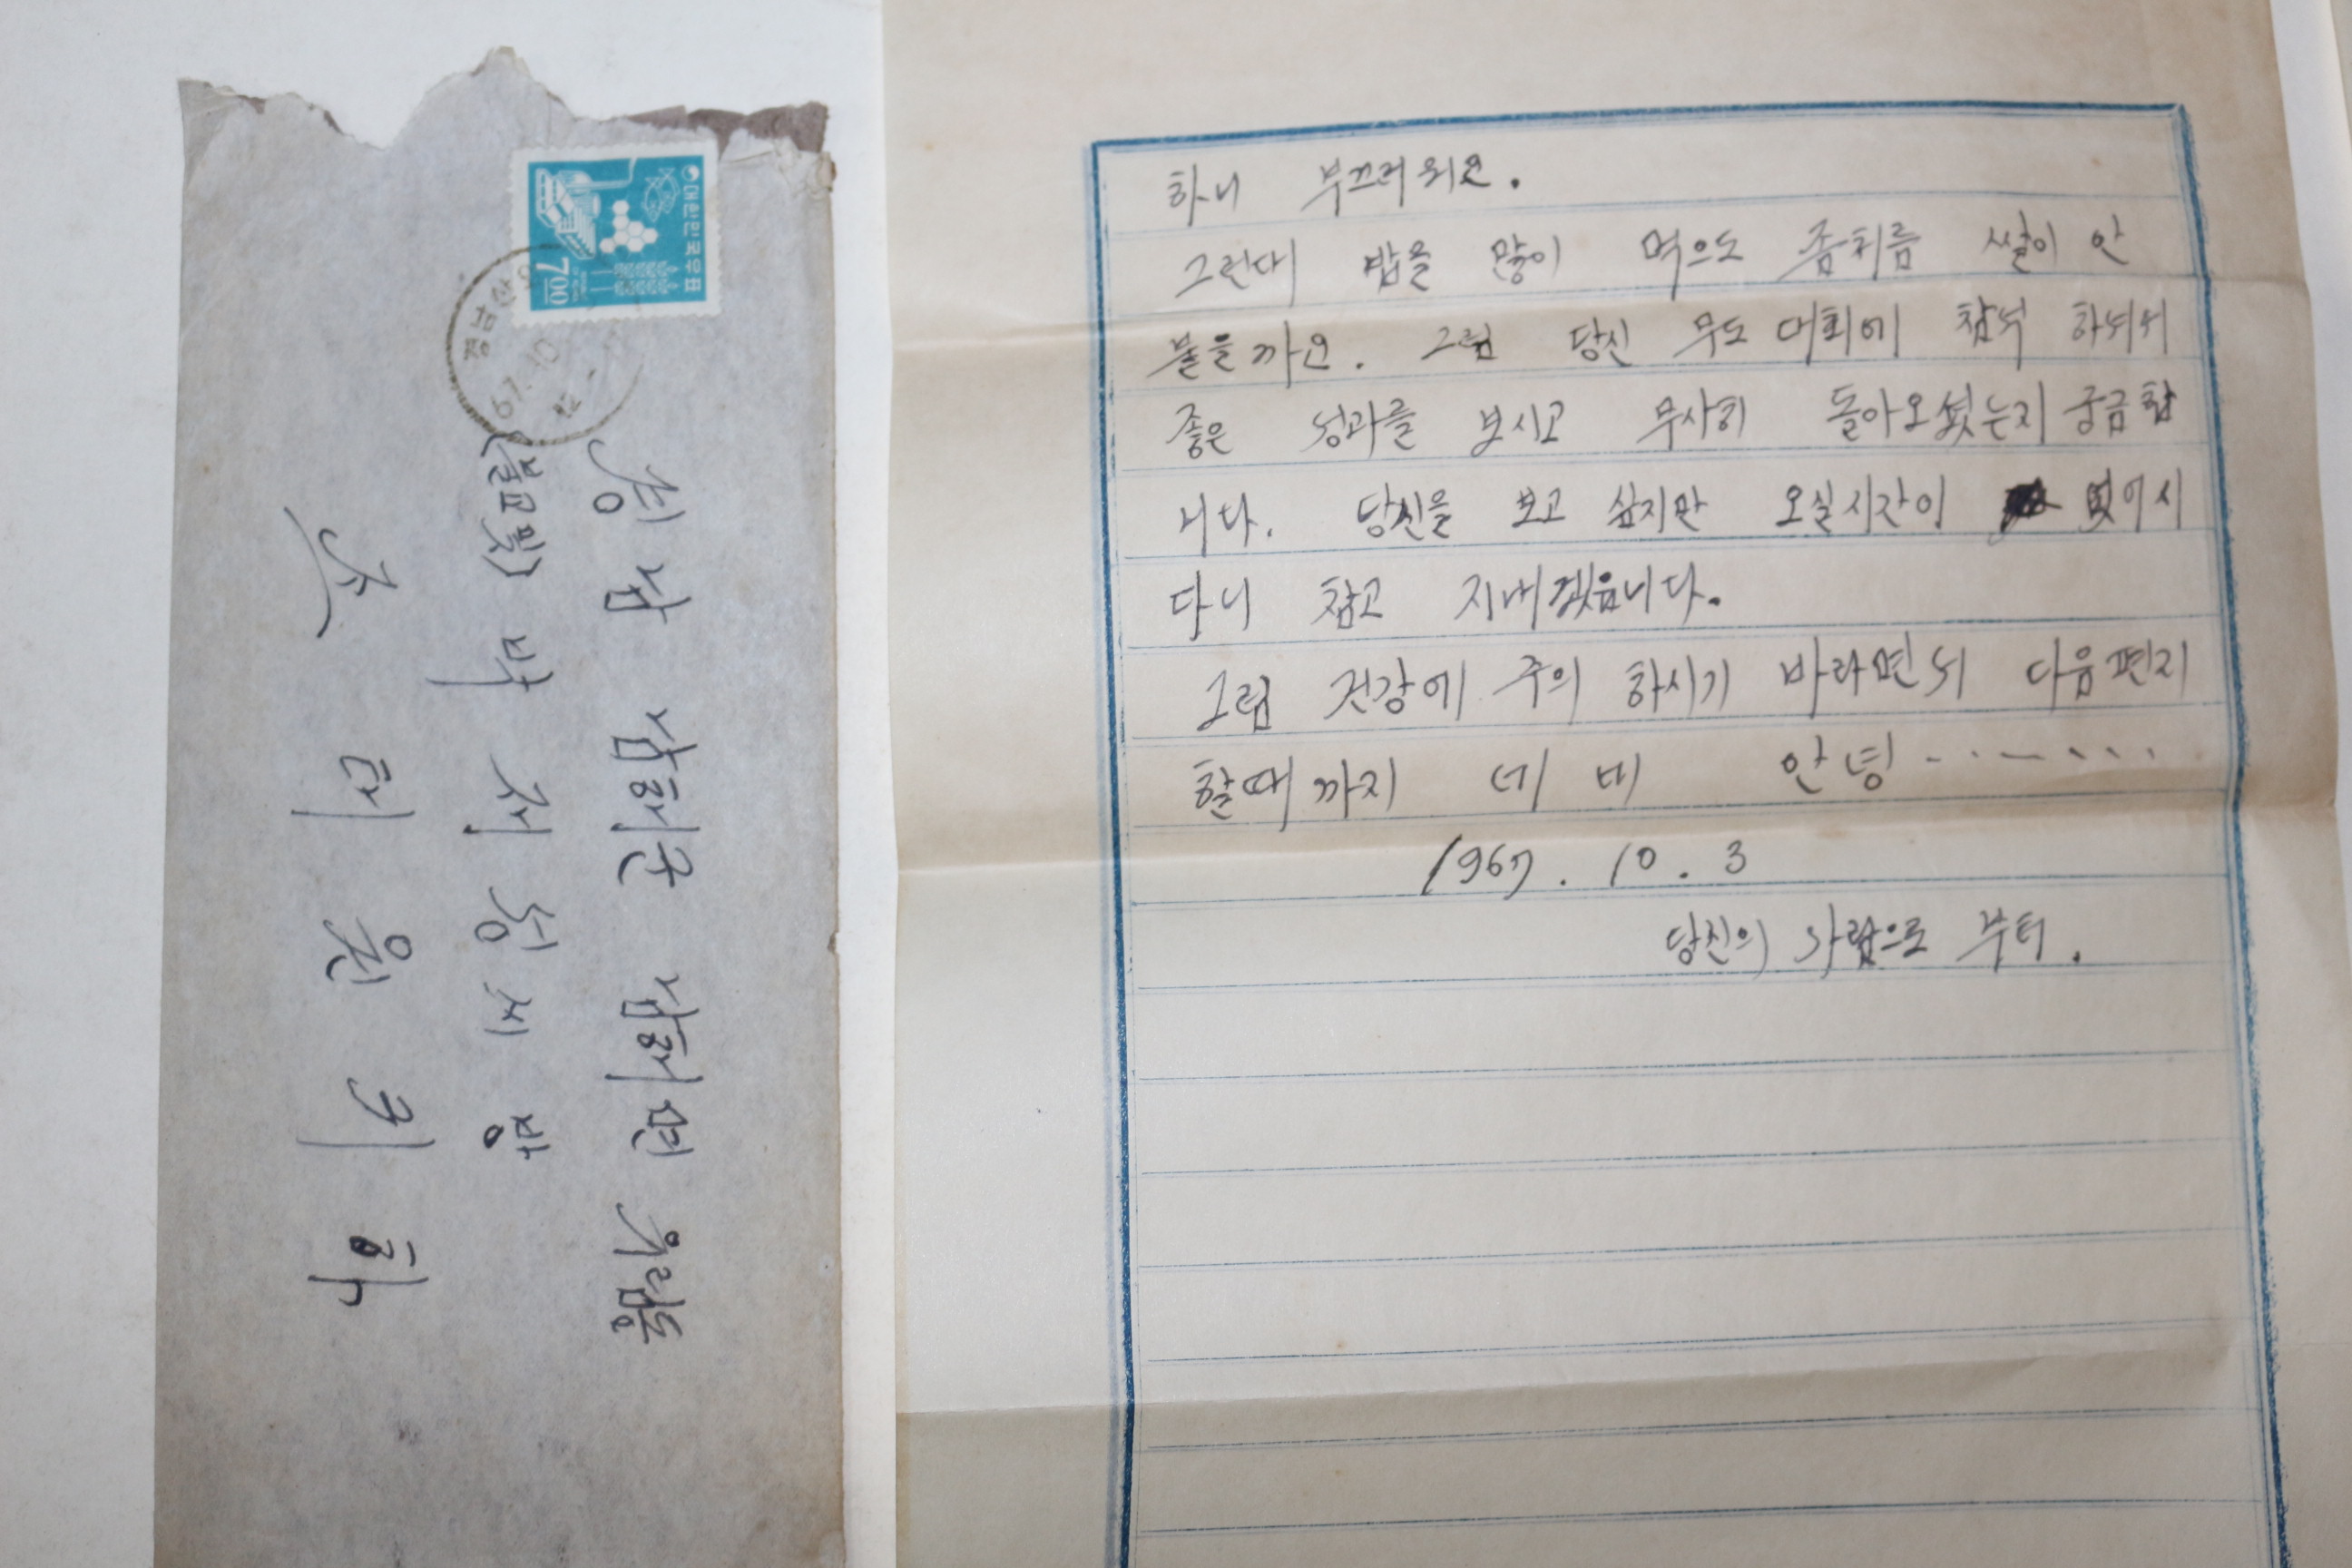 대한민국우표
700
67.10
경남 남해군 남해면 우리남동
(불교 밑)
박 서 정 씨 방
조 태 원 귀 하
하니 부끄러워요.
그런대 밥을 많이 먹으도 좀처름 쌀이 안
불을까요. 그럼 당신 무도 대회에 참석 하셔서
좋은 성과를 보시고 무사히 돌아오셨는지 궁금합
니다. 당신을 보고 싶지만 오실시간이 없어시
다니 참고 지내겠읍니다.
그럼 건강에 주의 하시기 바라면서 다음편지
할때까지 네 네 안녕
1967. 10. 3
당신의 사람으로 부터.